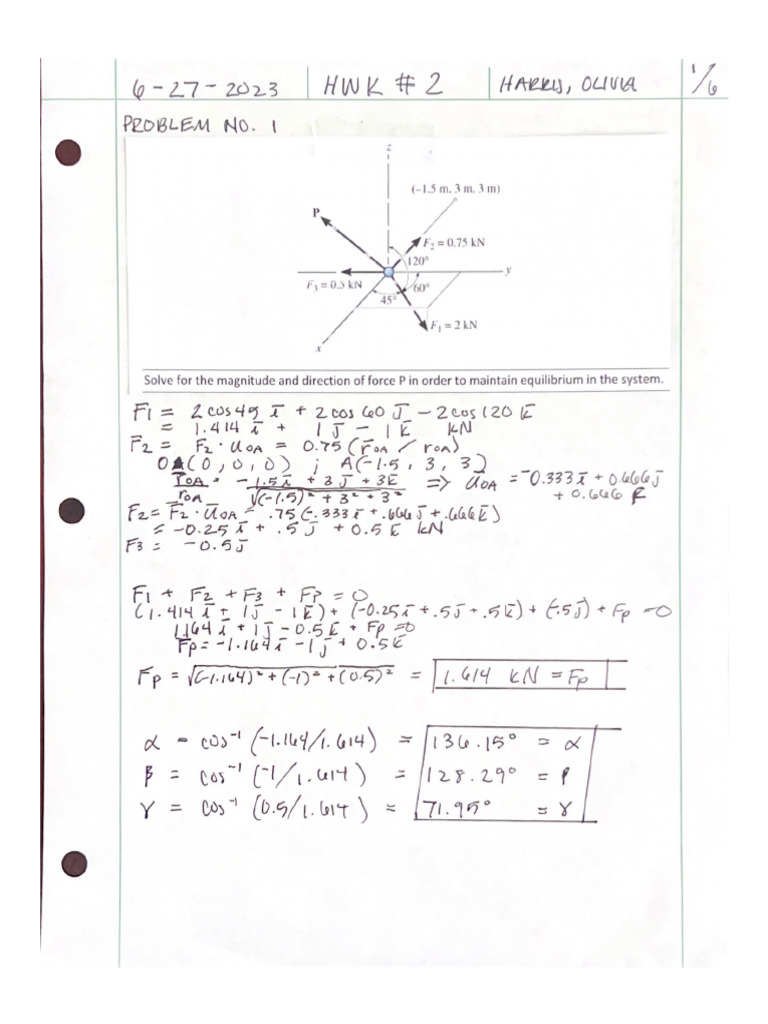 6-27-2023 HWK # 2 HARRIS, OLIVIA 1/6
PROBLEM NO. 1
z
(−1.5 m, 3 m, 3 m)
P
F₂ = 0.75 kN
120°
y
F₃ = 0.5 kN
60°
45°
F₁ = 2 kN
x
Solve for the magnitude and direction of force P in order to maintain equilibrium in the system.
F1 = 2cos45 i̅ + 2cos 60 j̅ − 2cos 120 k̅
= 1.414 i̅ + 1j̅ − 1k̅ kN
F̅2 = F2 · u̅OA = 0.75 (r̅OA / rOA)
OA(0,0,0) ; A(-1.5, 3, 3)
r̅OA / rOA = -1.5i̅ + 3j̅ + 3k̅ / √(-1.5)² + 3² + 3² ⇒ u̅OA = -0.333i̅ + 0.666j̅ + 0.666 k̅
F2 = F̅2 · u̅OA = .75(-.333i̅ + .666j̅ + .666k̅)
= -0.25i̅ + .5j̅ + 0.5k̅ kN
F3 = -0.5j̅
F1 + F2 + F3 + FP = 0
(1.414i̅ + 1j̅ − 1k̅) + (-0.25i̅ + .5j̅ + .5k̅) + (-.5j̅) + Fp = 0
1.164i̅ + 1j̅ − 0.5k̅ + Fp = 0
Fp = -1.164i̅ − 1j̅ + 0.5k̅
Fp = √(-1.164)² + (-1)² + (0.5)² = 1.614 kN = Fp
α = cos⁻¹(-1.164/1.614) = 136.15° = α
β = cos⁻¹(-1/1.614) = 128.29° = β
γ = cos⁻¹(0.5/1.614) = 71.95° = γ